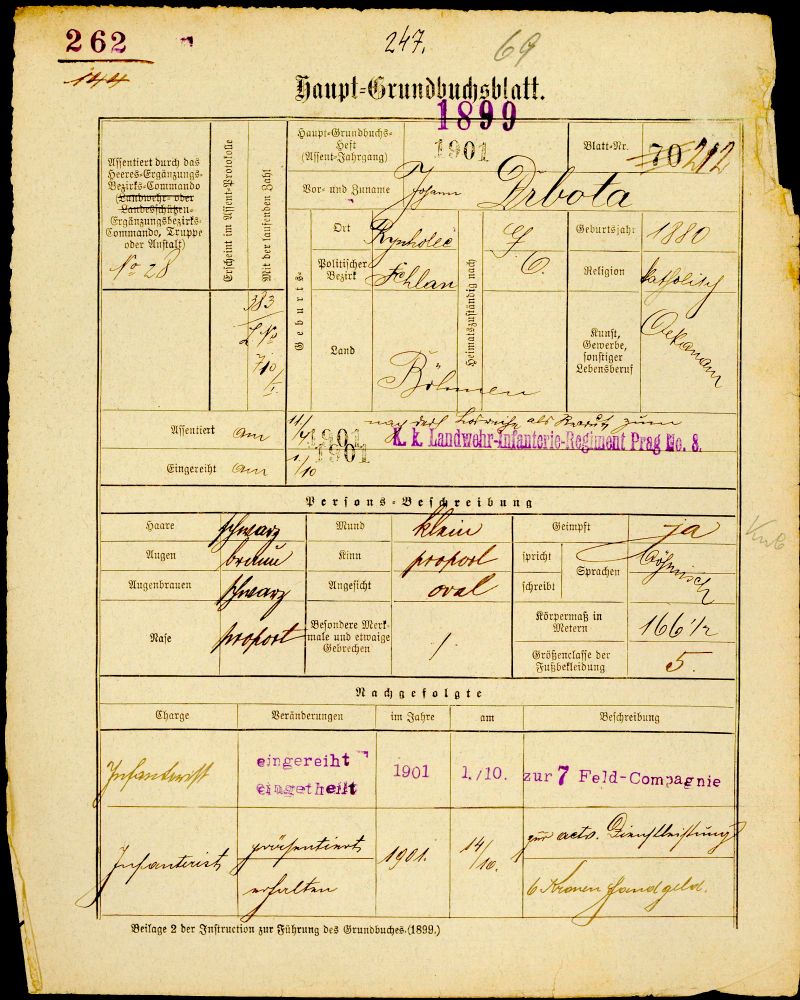 262
247.
69
144
Haupt-Grundbuchsblatt.
1899
Assentiert durch das
Heeres-Ergänzungs-
Bezirks-Commando
(Landwehr- oder
Landesschützen-
Ergänzungsbezirks-
Commando, Truppe
oder Anstalt)
No 28
Erscheint im Assent-Protokolle
Mit der laufenden Zahl
383
710
Haupt-Grundbuchs-
Heft
(Assent-Jahrgang)
1901
Blatt-Nr.
70 212
Vor- und Zuname
Johann Drbota
Geburts-
Ort
Rynholec
Politischer
Bezirk
Schlan
Land
Böhmen
Heimatszuständig nach
Geburtsjahr
1880
Religion
katholisch
Kunst,
Gewerbe,
sonstiger
Lebensberuf
Oekonom
Assentiert am 11/4 1901
nach der Losreihe als Rekrut zum
K. k. Landwehr-Infanterie-Regiment Prag No. 8.
Eingereiht am 1./10 1901
Persons-Beschreibung
Haare schwarz
Mund klein
Geimpft ja
Augen braun
Kinn proport
spricht
schreibt
Sprachen
böhmisch
Augenbrauen schwarz
Angesicht oval
Nase proport
Besondere Merk-
male und etwaige
Gebrechen
/.
Körpermaß in
Metern
166 1/2
Größenclasse der
Fußbekleidung
5.
Nachgefolgte
Charge Veränderungen im Jahre am Beschreibung
Infanterist
eingereiht
eingetheilt
1901 1./10. zur 7 Feld-Compagnie
Infanterist
präsentiert
1901. 14/10.
zur activ. Dienstleistung
erhalten
6 Kronen Handgeld.
Beilage 2 der Instruction zur Führung des Grundbuches (1899.)